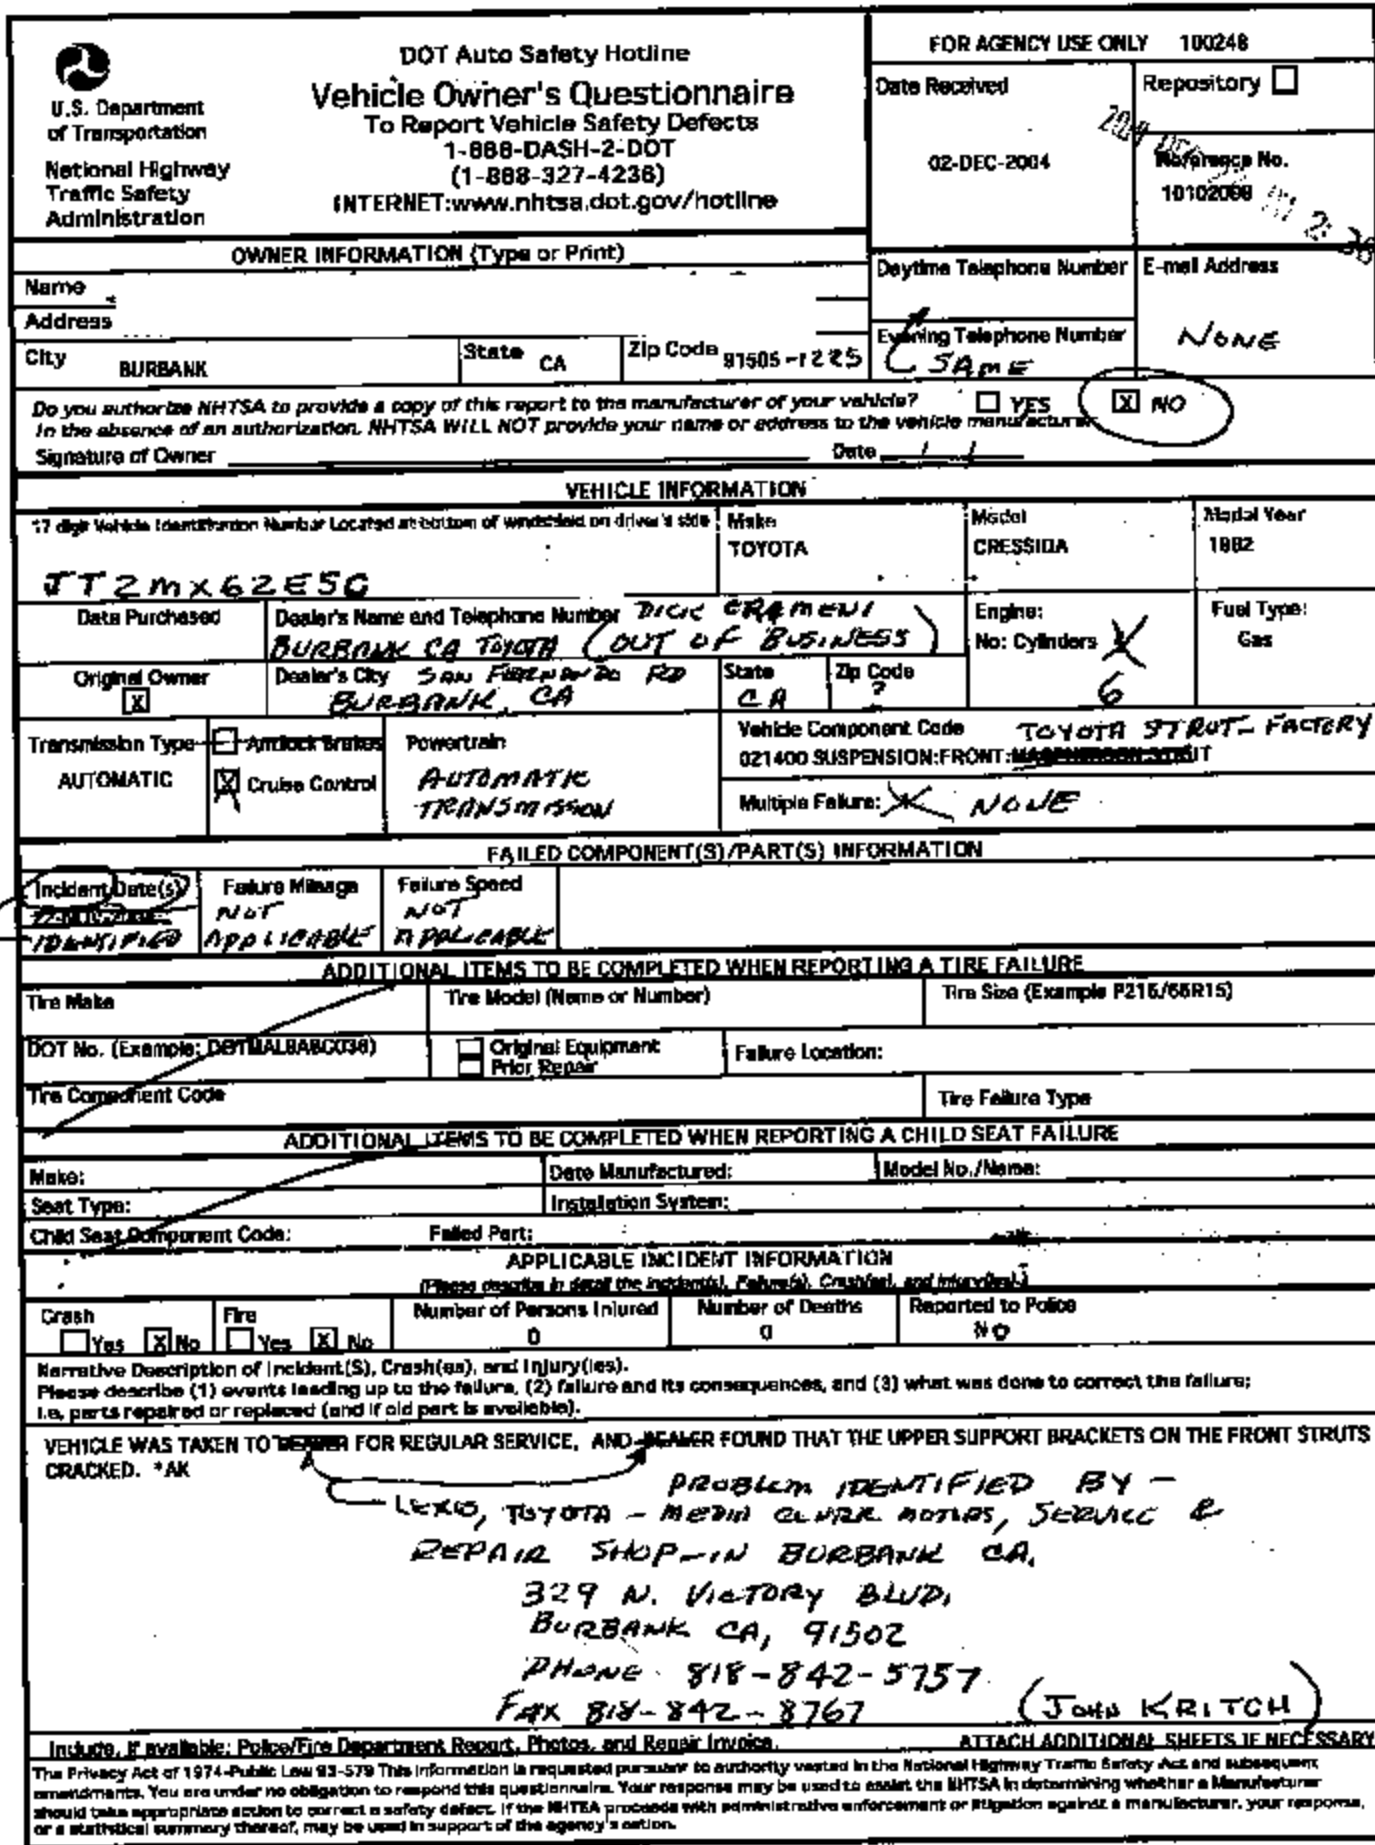 DOT Auto Safety Hotline
Vehicle Owner's Questionnaire
To Report Vehicle Safety Defects
1-888-DASH-2-DOT
(1-888-327-4236)
INTERNET:www.nhtsa.dot.gov/hotline
U.S. Department
of Transportation
National Highway
Traffic Safety
Administration
FOR AGENCY USE ONLY 100248
Date Received
02-DEC-2004
Repository
Reference No.
10102098
OWNER INFORMATION (Type or Print)
Name
Address
City BURBANK State CA Zip Code 91505-1225
Daytime Telephone Number
E-mail Address
NONE
Evening Telephone Number
SAME
Do you authorize NHTSA to provide a copy of this report to the manufacturer of your vehicle? YES X NO
In the absence of an authorization, NHTSA WILL NOT provide your name or address to the vehicle manufacturer.
Signature of Owner Date / /
VEHICLE INFORMATION
17 digit Vehicle Identification Number Located at bottom of windshield on driver's side
JT2MX62E5C
Make
TOYOTA
Model
CRESSIDA
Model Year
1982
Date Purchased
Dealer's Name and Telephone Number DICK
BURBANK CA TOYOTA (OUT OF BUSINESS)
Engine:
No: Cylinders
6
Fuel Type:
Gas
Original Owner
X
Dealer's City SAN FERNANDO RD
BURBANK, CA
State
CA
Zip Code
?
Transmission Type
AUTOMATIC
Antilock Brakes
X Cruise Control
Powertrain
AUTOMATIC
TRANSMISSION
Vehicle Component Code TOYOTA STRUT- FACTORY
021400 SUSPENSION:FRONT:
Multiple Failure: NONE
FAILED COMPONENT(S)/PART(S) INFORMATION
Incident Date(s)
IDENTIFIED
Failure Mileage
NOT
APPLICABLE
Failure Speed
NOT
APPLICABLE
ADDITIONAL ITEMS TO BE COMPLETED WHEN REPORTING A TIRE FAILURE
Tire Make
Tire Model (Name or Number)
Tire Size (Example P215/65R15)
DOT No. (Example: DOTMAL9ABC036)
Original Equipment
Prior Repair
Failure Location:
Tire Component Code
Tire Failure Type
ADDITIONAL ITEMS TO BE COMPLETED WHEN REPORTING A CHILD SEAT FAILURE
Make: Date Manufactured: Model No./Name:
Seat Type: Installation System:
Child Seat Component Code: Failed Part:
APPLICABLE INCIDENT INFORMATION
(Please describe in detail the incident(s), Failure(s), Crash(es), and injury(ies).)
Crash
Yes X No
Fire
Yes X No
Number of Persons Injured
0
Number of Deaths
0
Reported to Police
NO
Narrative Description of Incident(S), Crash(es), and Injury(ies).
Please describe (1) events leading up to the failure, (2) failure and its consequences, and (3) what was done to correct the failure;
i.e. parts repaired or replaced (and if old part is available).
VEHICLE WAS TAKEN TO DEALER FOR REGULAR SERVICE, AND DEALER FOUND THAT THE UPPER SUPPORT BRACKETS ON THE FRONT STRUTS
CRACKED. *AK
PROBLEM IDENTIFIED BY -
LEXUS, TOYOTA - MOTORS, SERVICE &
REPAIR SHOP-IN BURBANK CA.
329 N. VICTORY BLVD,
BURBANK CA, 91502
PHONE 818-842-5757
FAX 818-842-8767 (JOHN KRITCH)
Include, if available: Police/Fire Department Report, Photos, and Repair Invoice. ATTACH ADDITIONAL SHEETS IF NECESSARY
The Privacy Act of 1974-Public Law 93-579 This information is requested pursuant to authority vested in the National Highway Traffic Safety Act and subsequent
amendments. You are under no obligation to respond this questionnaire. Your response may be used to assist the NHTSA in determining whether a Manufacturer
should take appropriate action to correct a safety defect. If the NHTSA proceeds with administrative enforcement or litigation against a manufacturer, your response,
or a statistical summary thereof, may be used in support of the agency's action.